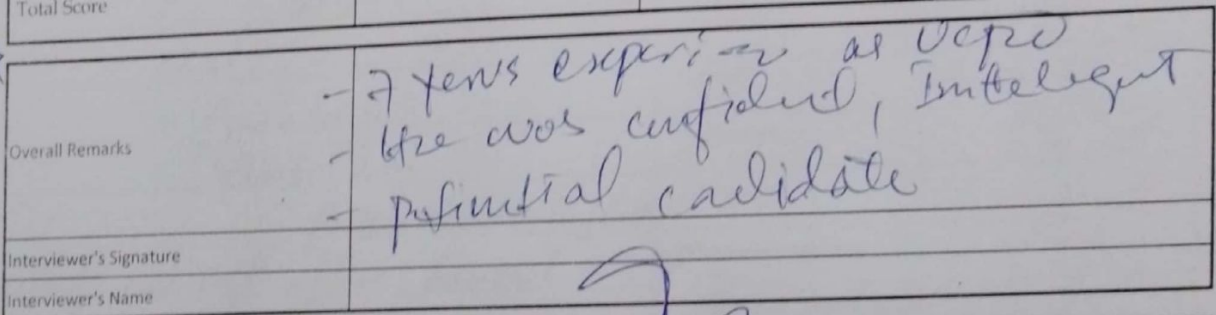 Total Score
Overall Remarks
- 7 Yers experi as
- He was confident, Inttelegent
- Potimtial cadidate
Interviewer's Signature
Interviewer's Name